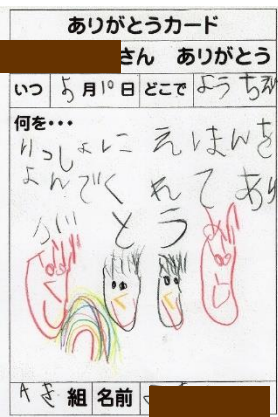 ありがとうカード
さん ありがとう
いつ 5月10日 どこで ようちえん
何を・・・
いっしょに えほんを
よんでくれてあり
がとう
組 名前